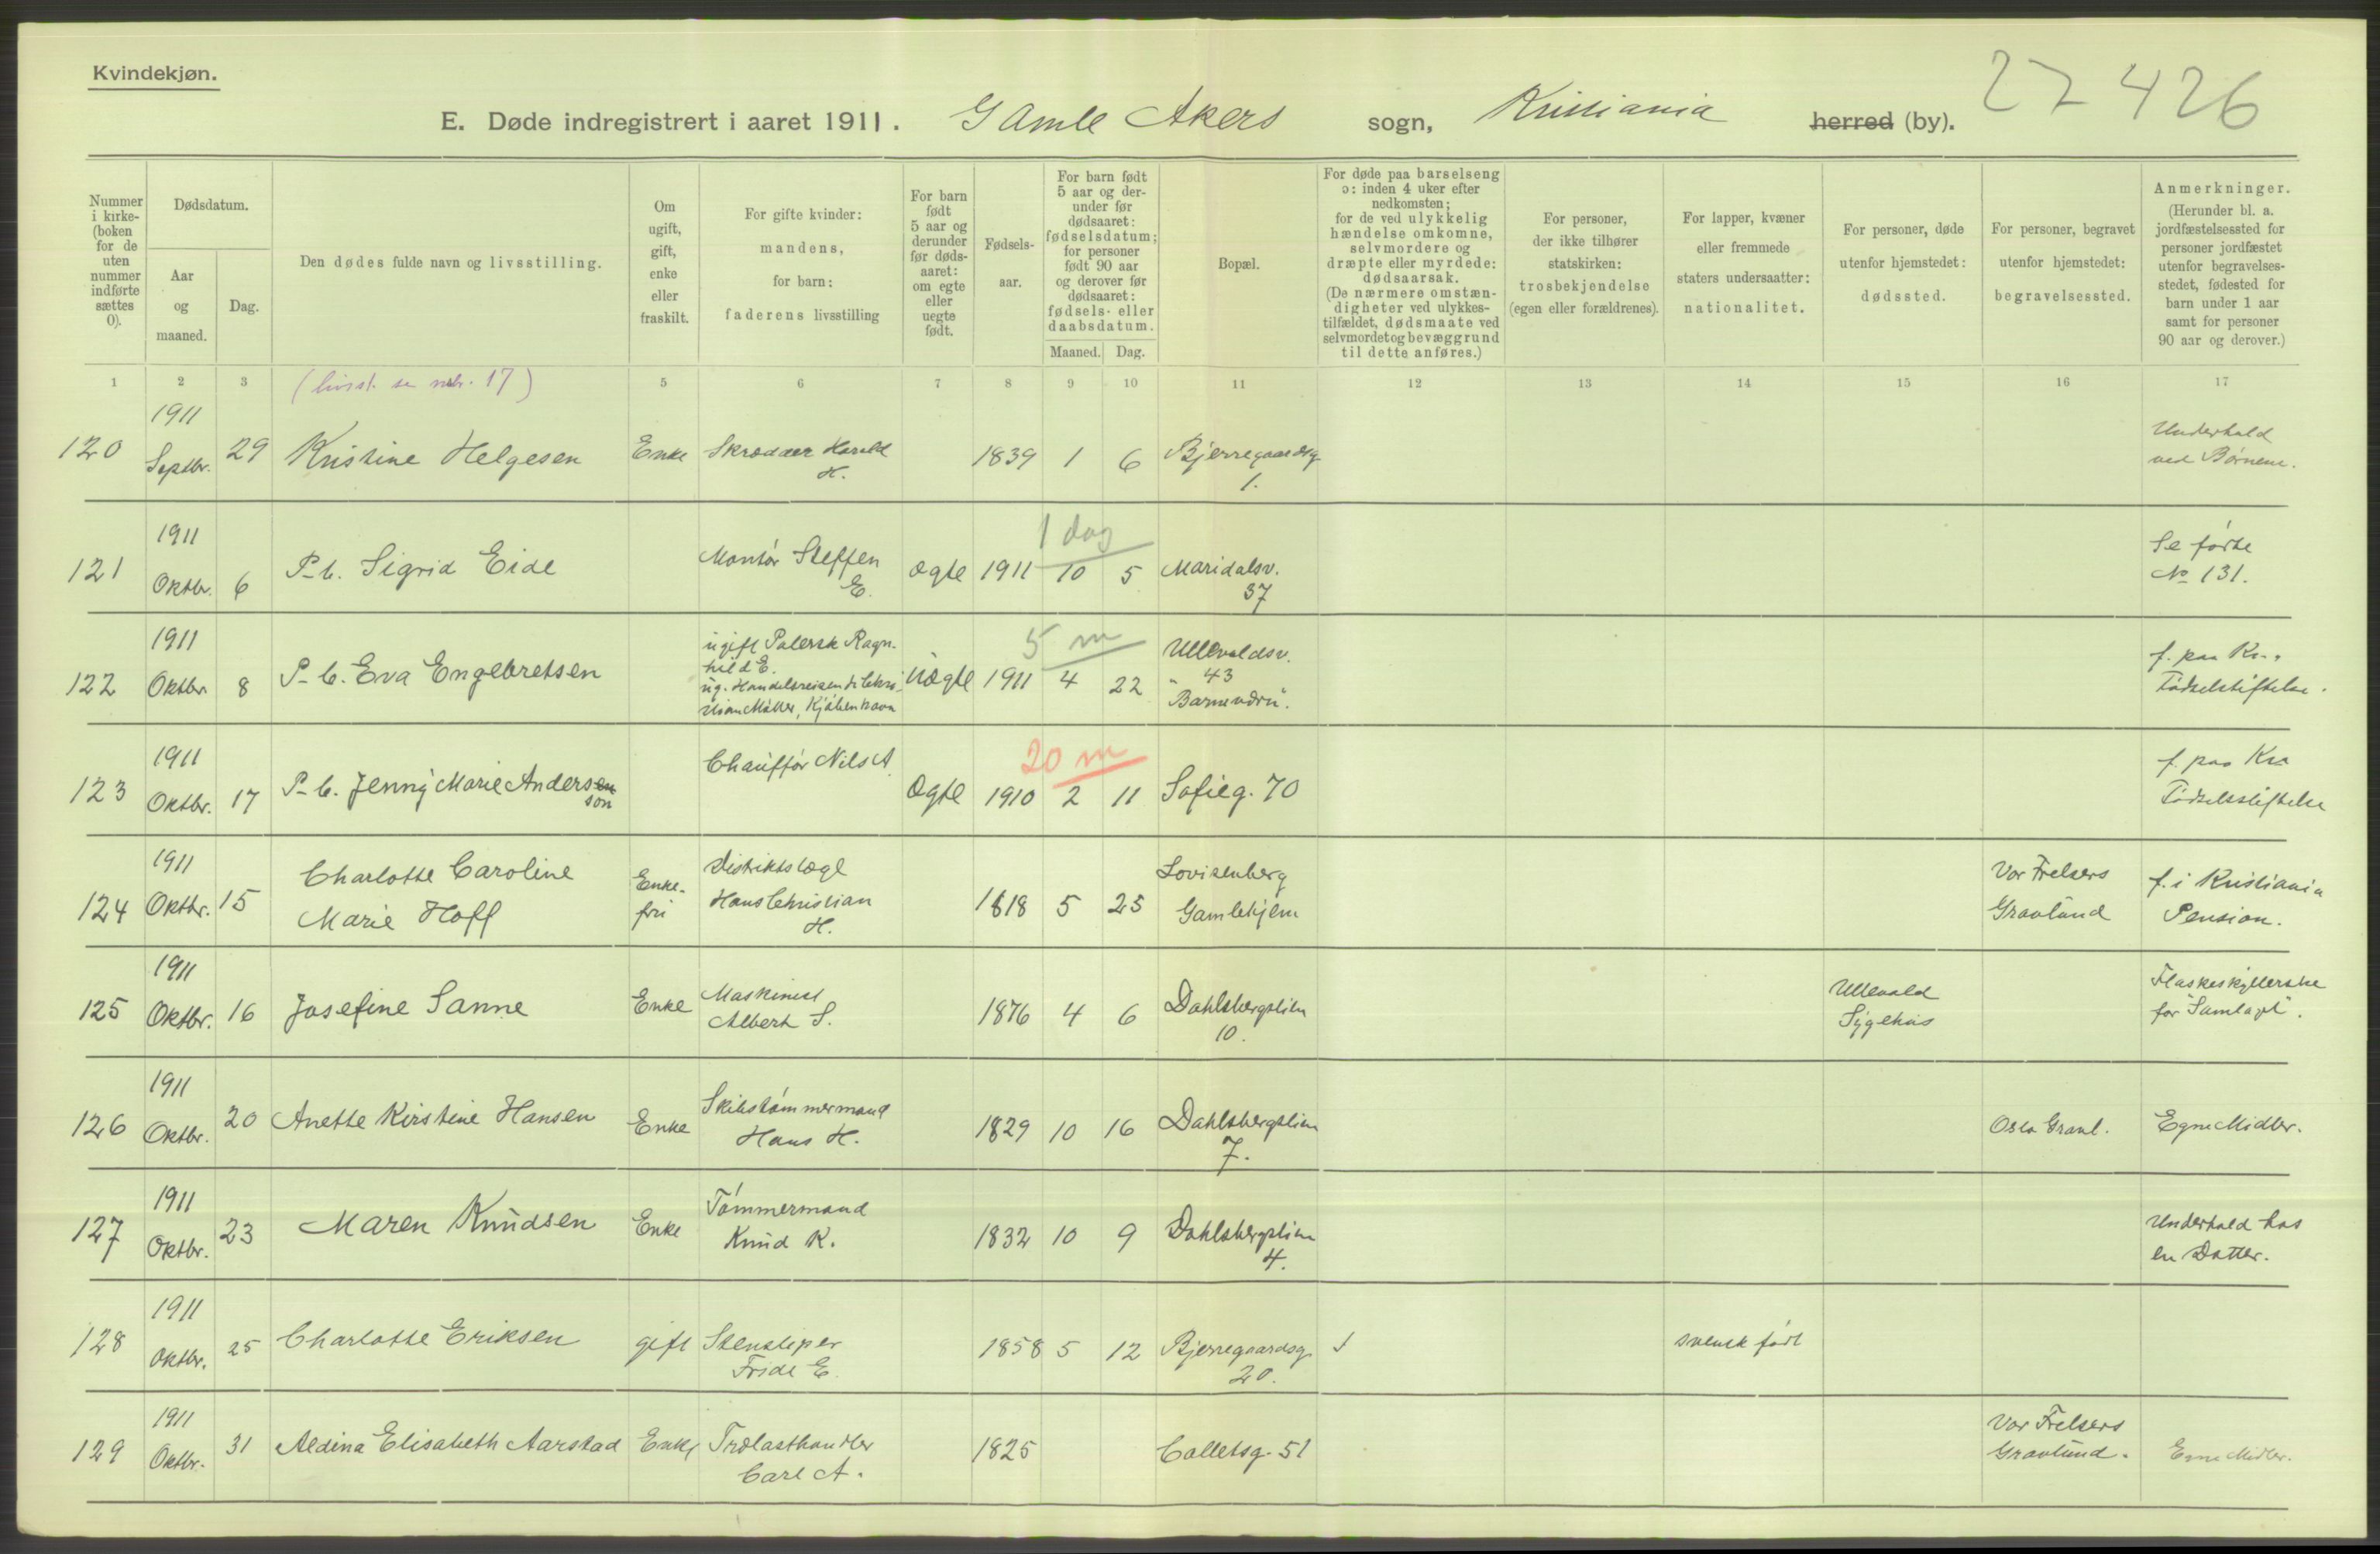 Kvindekjøn.
E. Døde indregistrert i aaret 1911. Gamle Akers sogn, Kristiania herred (by). 22 426
Nummer i kirke-(boken for de uten nummer indførte sættes 0).
Dødsdatum.
Aar og maaned.
Dag.
Den dødes fulde navn og livsstilling.
Om ugift, gift, enke eller fraskilt.
For gifte kvinder: mandens, for barn: faderens livsstilling
For barn født 5 aar og derunder før døds-aaret: om egte eller uegte født.
Fødsels-aar.
For barn født 5 aar og der-under før dødsaaret: fødselsdatum; for personer født 90 aar og derover før dødsaaret: fødsels- eller daabsdatum.
Maaned. Dag.
Bopæl.
For døde paa barselseng ɔ: inden 4 uker efter nedkomsten; for de ved ulykkelig hændelse omkomne, selvmordere og dræpte eller myrdede: dødsaarsak. (De nærmere omstæn-digheter ved ulykkes-tilfældet, dødsmaate ved selvmordet og bevæggrund til dette anføres.)
For personer, der ikke tilhører statskirken: trosbekjendelse (egen eller forældrenes).
For lapper, kvæner eller fremmede staters undersaatter: nationalitet.
For personer, døde utenfor hjemstedet: dødssted.
For personer, begravet utenfor hjemstedet: begravelsessted.
Anmerkninger. (Herunder bl. a. jordfæstelsessted for personer jordfæstet utenfor begravelses-stedet, fødested for barn under 1 aar samt for personer 90 aar og derover.)
1 2 3 (livsst. se rubr. 17) 5 6 7 8 9 10 11 12 13 14 15 16 17
120 1911 Septbr. 29 Kristine Helgesen Enke Skrædder Harald H. 1839 1 6 Bjerregaardsg. 1. Underhold ved Børnene.
121 1911 Oktbr. 6 P-b. Sigrid Eide Montør Steffen E. Ægte 1911 10 5 1 dag Maridalsv. 37 Se førte No 131.
122 1911 Oktbr. 8 P-b. Eva Engebretsen ugift Polersk Ragn-hild E. ug. Handelsreisende Chri-stian Møller, Kjøbenhavn Uægte 1911 4 22 5 m Ullevoldsv. 43 "Barnendrü". f. paa Kr. Fødselstiftelse.
123 1911 Oktbr. 17 P-b. Jenny Marie Andersen son Chauffør Nils A. Ægte 1910 2 11 20 m Sofieg. 70 f. paa Kra Fødselsstiftelse
124 1911 Oktbr. 15 Charlotte Caroline Marie Hoff Enke-fru Distriktslæge Hans Christian H. 1818 5 25 Lovisenberg Gamlehjem Vor Frelsers Gravlund f. i Kristiania Pension.
125 1911 Oktbr. 16 Josefine Sanne Enke Maskinist Albert S. 1876 4 6 Dahlsbergstien 10. Ullevold Sygehus Flaskeskyllerske for "Samlaget".
126 1911 Oktbr. 20 Anette Kirstine Hansen Enke Skibstømmermand Hans H. 1829 10 16 Dahlsbergstien 7. Oslo Gravl. Egne Midler.
127 1911 Oktbr. 23 Maren Knudsen Enke Tømmermand Knud K. 1832 10 9 Dahlsbergstien 4. Underhold hos en Datter.
128 1911 Oktbr. 25 Charlotte Eriksen gift Stensliper Fride E. 1858 5 12 Bjerregaardsg. 20. svensk født
129 1911 Oktbr. 31 Aldina Elisabeth Aarstad Enke Trælasthandler Carl A. 1825 Colletsg. 51 Vor Frelsers Gravlund. Egne Midler.